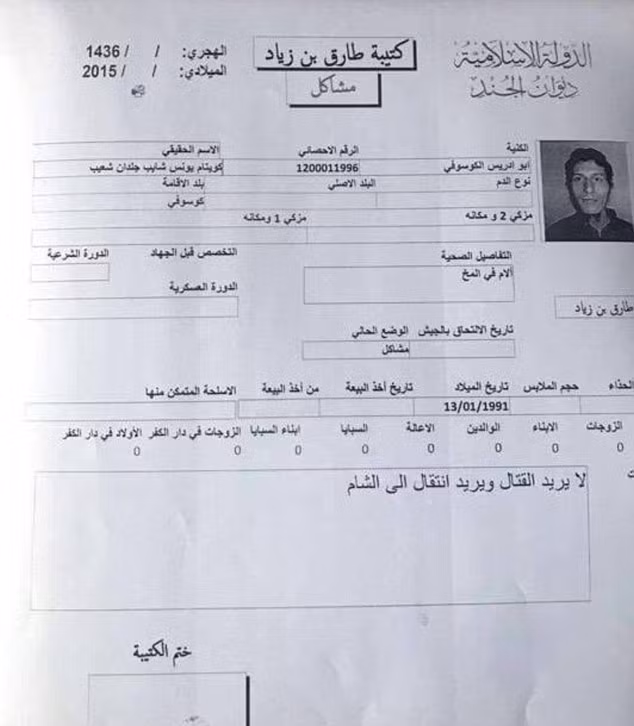 الدولة الإسلامية
ديوان الجند
كتيبة طارق بن زياد
مشاكل
الهجري: / / 1436
الميلادي: / / 2015
الكنية الرقم الاحصائي الاسم الحقيقي
ابو ادريس الكوسوفي 1200011996 كويتام يونس شايب جلدان شعيب
نوع الدم البلد الاصلي بلد الاقامة
كوسوفي
مزكي 2 و مكانه مزكي 1 ومكانه
التفاصيل الصحية التخصص قبل الجهاد الدورة الشرعية
الام في المخ
الدورة العسكرية
طارق بن زياد
تاريخ الالتحاق بالجيش الوضع الحالي
مشاكل
الحذاء حجم الملابس تاريخ الميلاد تاريخ أخذ البيعة من أخذ البيعة الاسلحة المتمكن منها
13/01/1991
الزوجات الابناء الوالدين الاعالة السبايا ابناء السبايا الزوجات في دار الكفر الأولاد في دار الكفر
0 0 0 0 0 0 0 0
لا يريد القتال ويريد انتقال الى الشام
ختم الكتيبة